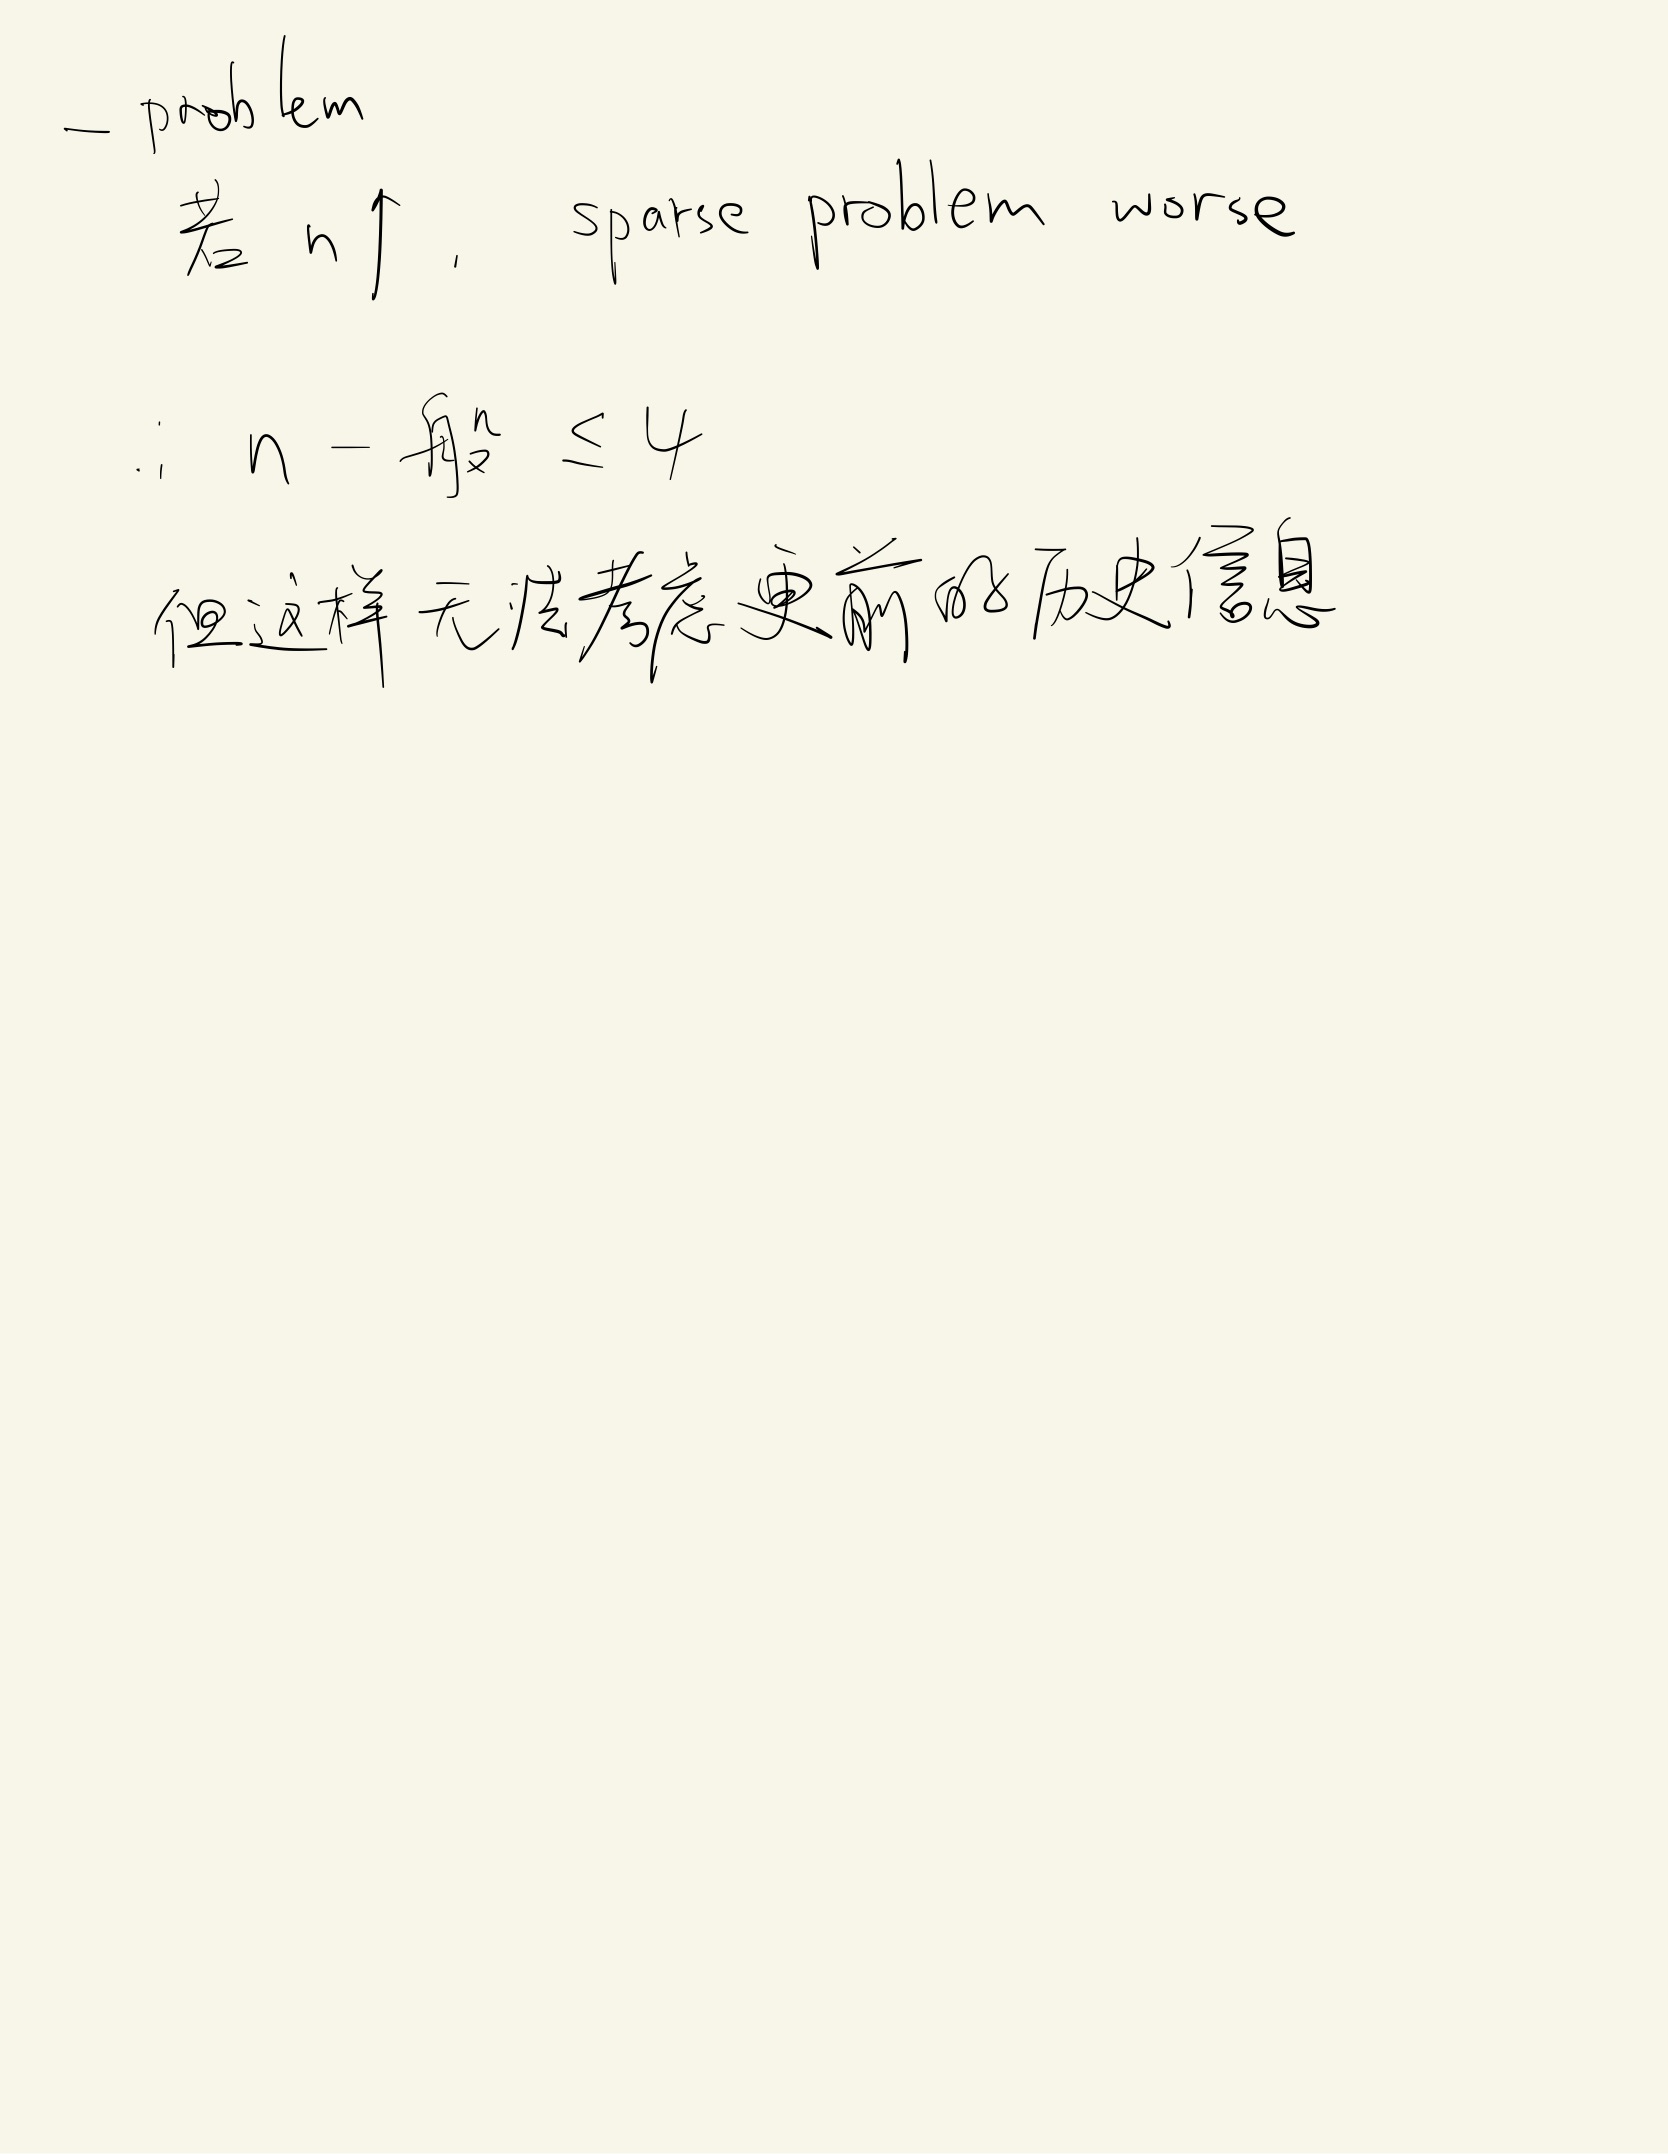 — problem
若 n↑, sparse problem worse
∴ n 一般 ≤ 4
但这样无法考虑更前的历史信息